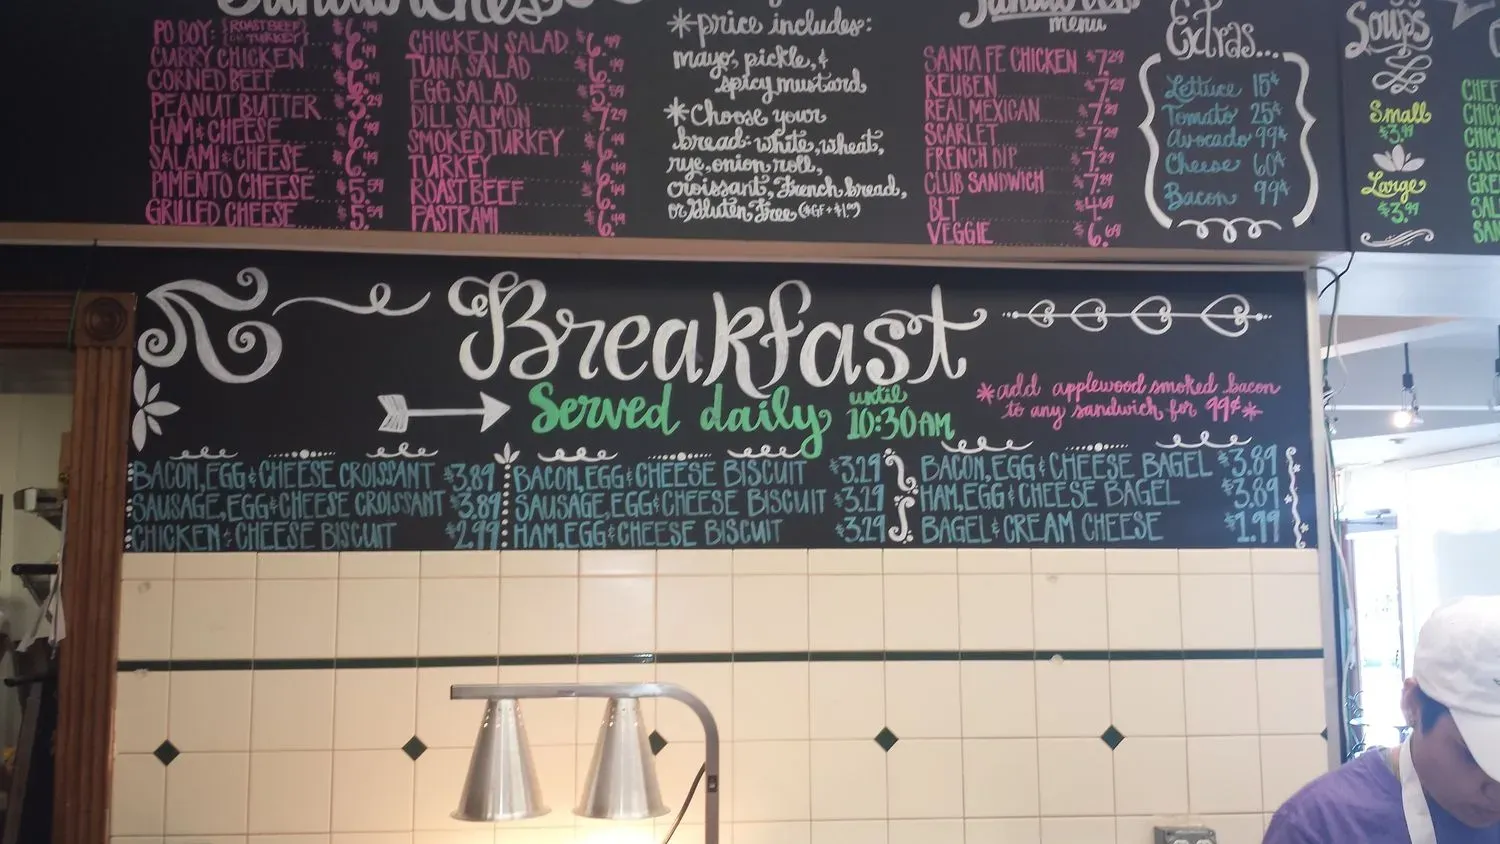 Sandwiches
PO BOY: {ROAST BEEF} $6.49
{OR TURKEY}
CURRY CHICKEN $6.49
CORNED BEEF $6.49
PEANUT BUTTER $3.29
HAM & CHEESE $6.49
SALAMI & CHEESE $6.49
PIMENTO CHEESE $5.59
GRILLED CHEESE $5.59
CHICKEN SALAD $6.49
TUNA SALAD $6.49
EGG SALAD $5.59
DILL SALMON $7.29
SMOKED TURKEY $6.49
TURKEY $6.49
ROAST BEEF $6.49
PASTRAMI $6.49
*price includes:
mayo, pickle, &
spicy mustard
*Choose your
bread: white, wheat,
rye, onion roll,
croissant, French bread,
or Gluten Free (*GF + $1.00)
Sandwich
menu
SANTA FE CHICKEN $7.29
REUBEN $7.29
REAL MEXICAN $7.29
SCARLET $7.29
FRENCH DIP $7.29
CLUB SANDWICH $7.29
BLT $4.69
VEGGIE $6.69
Extras...
Lettuce 15¢
Tomato 25¢
Avocado 99¢
Cheese 60¢
Bacon 99¢
Soups
Small
$3.19
Large
$3.99
Breakfast
Served daily until
10:30AM
*add applewood smoked bacon
to any sandwich for 99¢*
BACON, EGG & CHEESE CROISSANT $3.89
SAUSAGE, EGG & CHEESE CROISSANT $3.89
CHICKEN & CHEESE BISCUIT $2.99
BACON, EGG & CHEESE BISCUIT $3.29
SAUSAGE, EGG & CHEESE BISCUIT $3.29
HAM, EGG & CHEESE BISCUIT $3.29
BACON, EGG & CHEESE BAGEL $3.89
HAM, EGG & CHEESE BAGEL $3.89
BAGEL & CREAM CHEESE $1.99